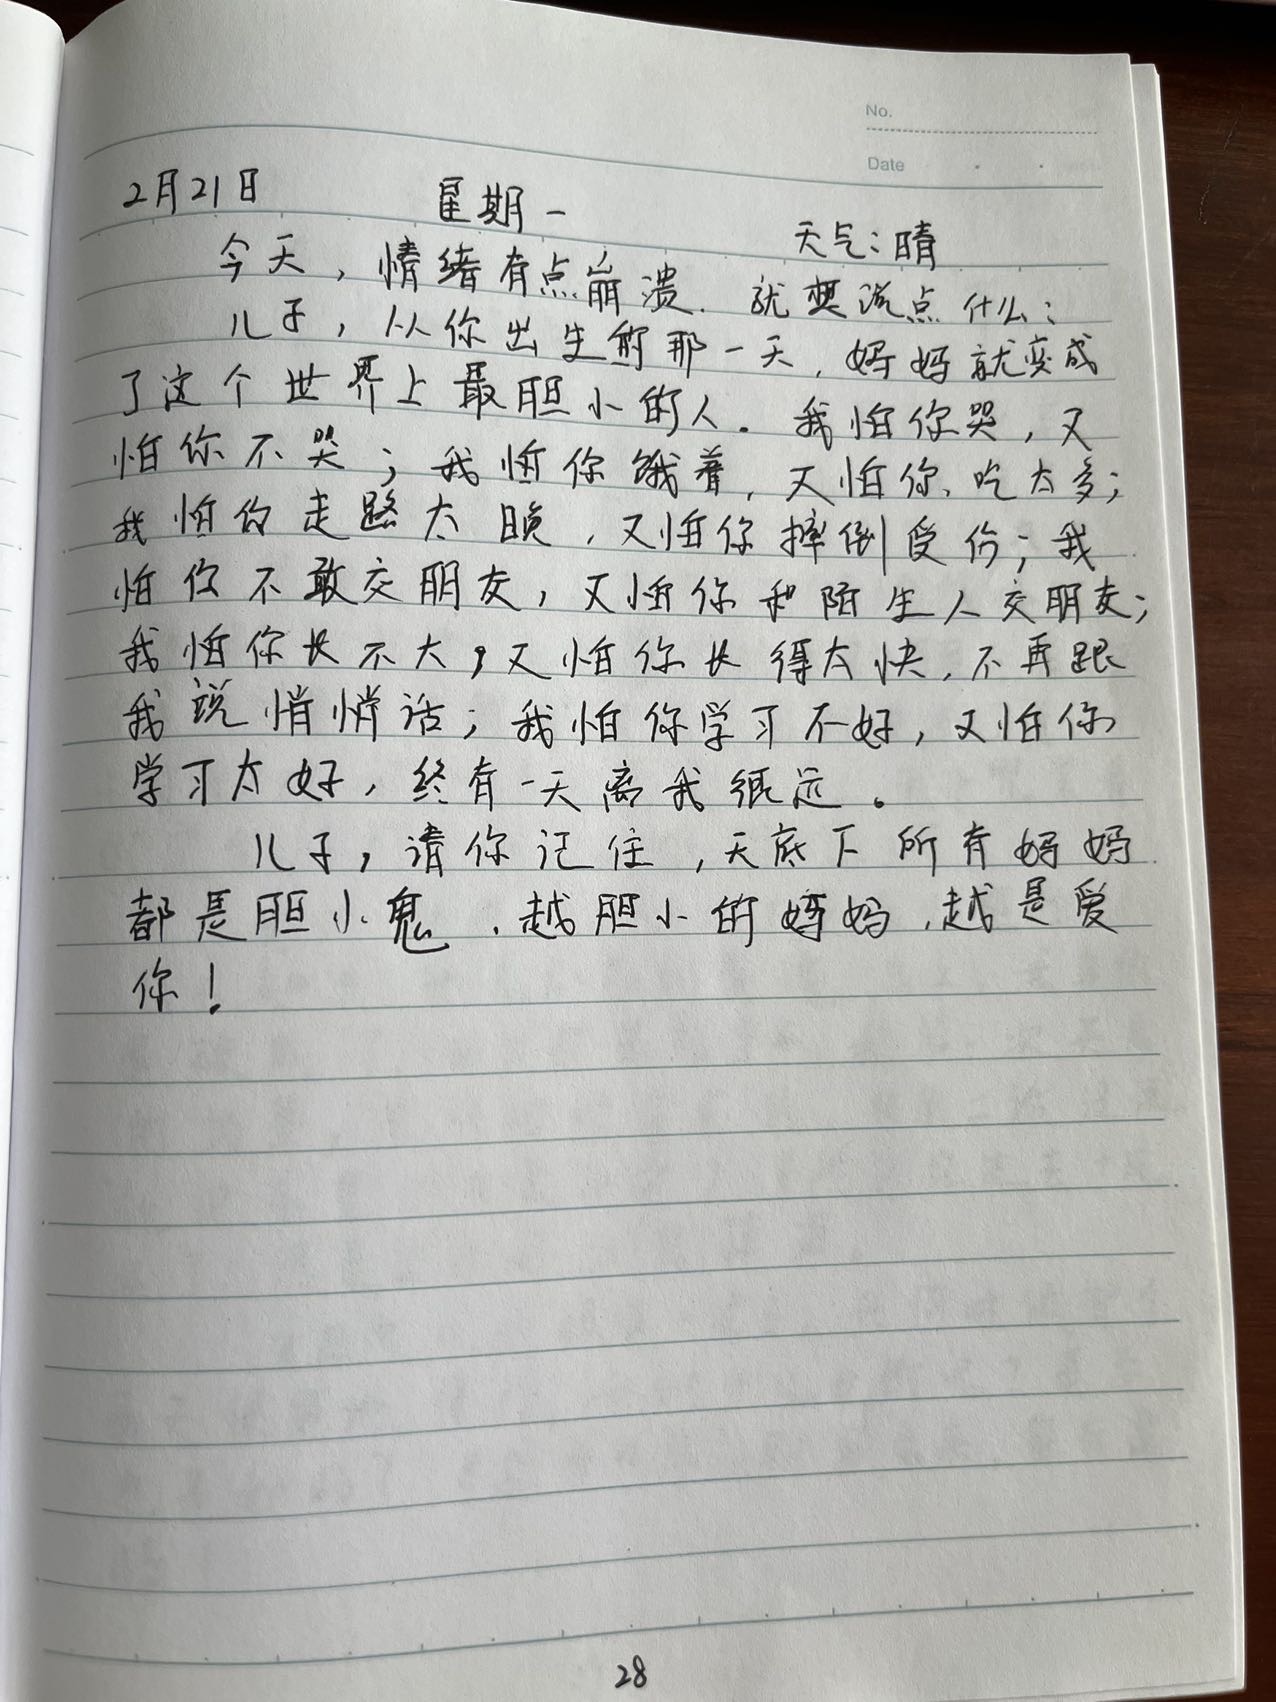 No.
Date
2月21日 星期一 天气:晴
今天,情绪有点崩溃.就想说点什么:
儿子,从你出生的那一天,妈妈就变成
了这个世界上最胆小的人。我怕你哭,又
怕你不哭;我怕你饿着,又怕你、吃太多;
我怕你走路太晚,又怕你摔倒受伤;我
怕你不敢交朋友,又怕你和陌生人交朋友;
我怕你长不大,又怕你长得太快,不再跟
我说悄悄话;我怕你学习不好,又怕你
学习太好,终有一天离我很远。
儿子,请你记住,天底下所有妈妈
都是胆小鬼.越胆小的妈妈,越是爱
你!
28